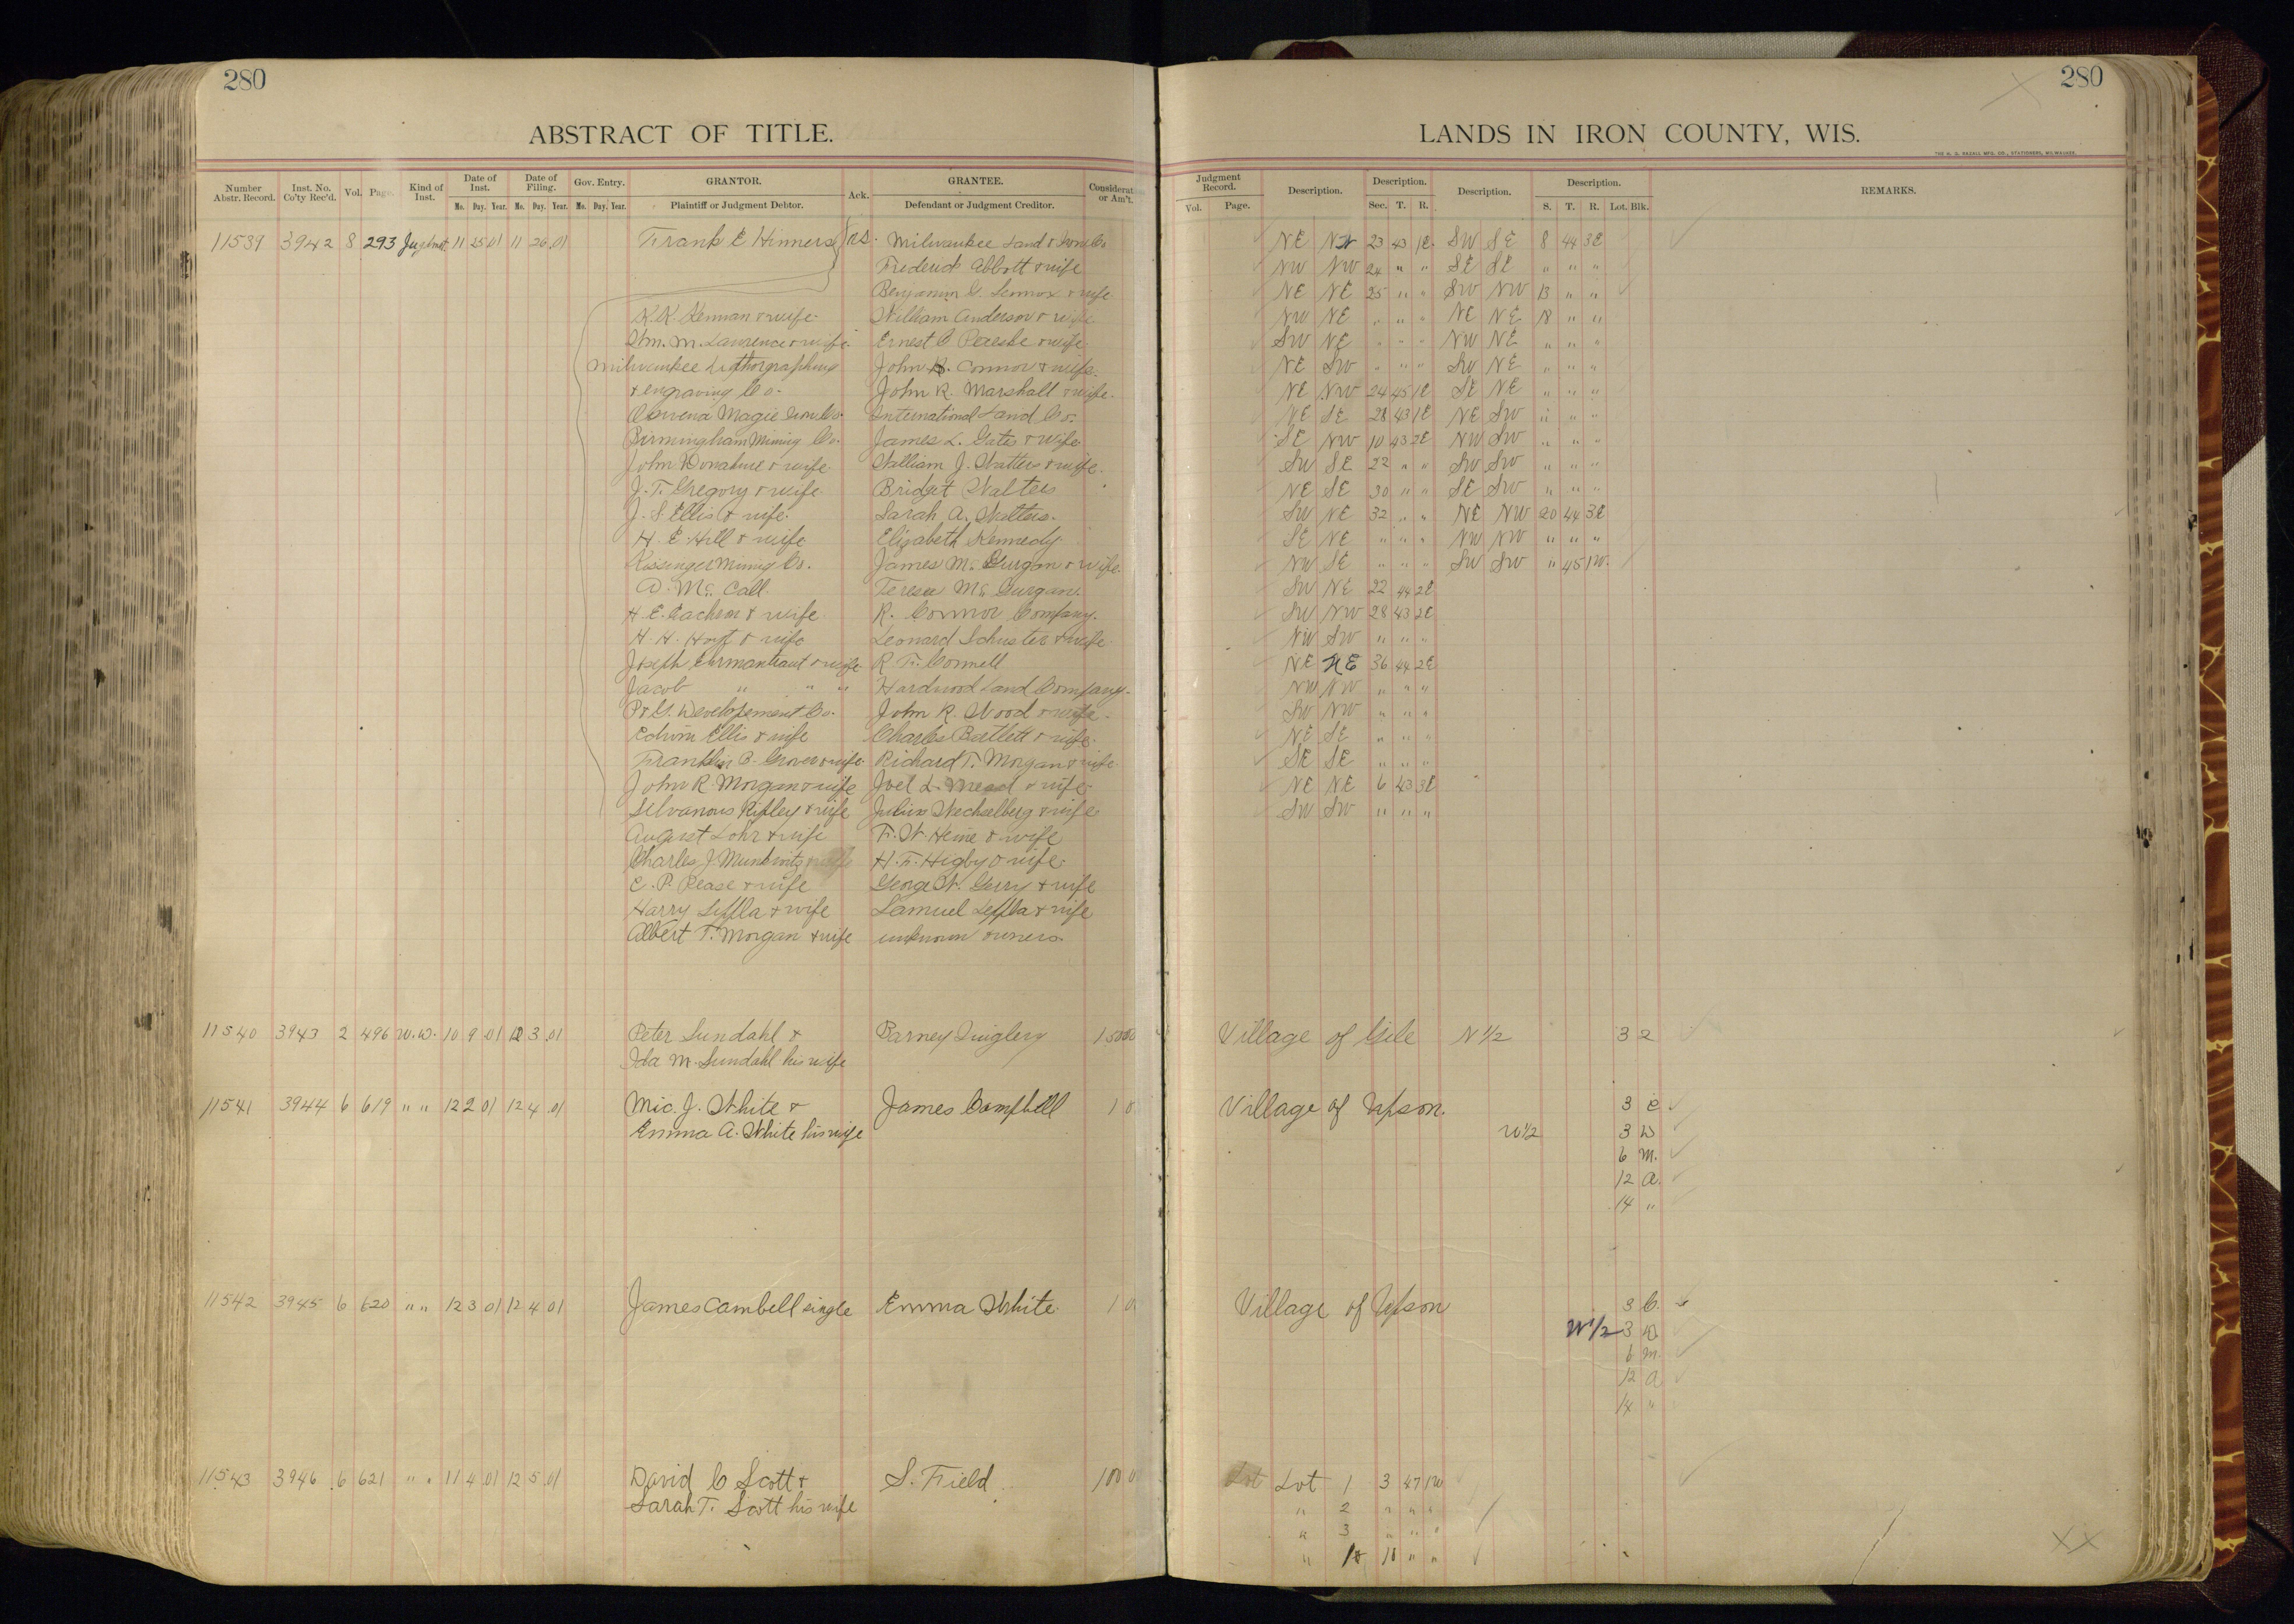 280
ABSTRACT OF TITLE.
Number Abstr. Record. Inst. No. Co'ty Rec'd. Vol. Page. Kind of Inst. Date of Inst. Date of Filing. Gov. Entry. GRANTOR. Ack. GRANTEE. Considerat or Am't.
Mo. Day. Year. Mo. Day. Year. Mo. Day. Year. Plaintiff or Judgment Debtor. Defendant or Judgment Creditor.
11539 3942 8 293 Jugdmt 11 25 01 11 26 01 Frank E Hinners vs. Milwaukee Land & Iron Co
Frederick Abbott & wife
Benjamin G. Lennox & wife
K.K. Kennan & wife William Anderson & wife
Wm. M. Lawrence & wife Ernest C & wife
Milwaukee Lithographing John R. Connor & wife
& engraving Co. John R. Marshall & wife
Magie Iron Co. International Land Co.
Birmingham Mining Co. James L. Gates & wife
John Donahue & wife William J. Walters & wife
J. T. Gregory & wife Bridget Walters
J. S. Ellis & wife Sarah A. Walters
H. E. Hill & wife Elizabeth Kennedy
Kissenger Mining Co. James Mc Gurgan & wife
D. Mc Call Teresa Mc Gurgan.
H. E. & wife R. Connor Company.
H. H. Hoyt & wife Leonard Schuster & wife
Joseph Ermantraut & wife R. F. Connell
Jacob " " " Hardwood Land Company
P & G. Developement Co. John R. Wood & wife
Edwin Ellis & wife Charles Bartlett & wife
Franklin B. Grover & wife Richard T. Morgan & wife
John R. Morgan & wife Joel L. Mead & wife
Silvanous Ripley & wife Julius Wechselberg & wife
August Lohr & wife F. W. Heine & wife
Charles J. & wife H. F. Higby & wife
E. P. Pease & wife George W. Gerry & wife
Harry Leffla & wife Samuel Leffla & wife
Albert T. Morgan & wife unknown owners
11540 3943 2 496 W.D. 10 9 01 12 3 01 Peter Sundahl & Barney 150 00
Ida M. Sundahl his wife
11541 3944 6 619 " " 12 2 01 12 4 01 Mic. J. White & James Campbell 1 0
Emma A. White his wife
11542 3945 6 620 " " 12 3 01 12 4 01 James Cambell single Emma White 1 0
11543 3946 6 621 " " 11 4 01 12 5 01 David C Scott & S. Field 100 0
Sarah T. Scott his wife
280
LANDS IN IRON COUNTY, WIS.
THE H. G. RAZALL MFG. CO., STATIONERS, MILWAUKEE.
Judgment Record. Description. Description. Description. Description. REMARKS.
Vol. Page. Sec. T. R. S. T. R. Lot. Blk.
NE NW 23 43 1E SW SE 8 44 3E
NW NW 24 " " SE SE " " "
NE NE 25 " " SW NW 13 " "
NW NE " " " NE NE 18 " "
SW NE " " " NW NE " " "
NE SW " " " SW NE " " "
NE NW 24 45 1E SE NE " " "
NE SE 28 43 1E NE SW " " "
SE NW 10 43 2E NW SW " " "
SW SE 22 " " SW SW " " "
NE SE 30 " " SE SW " " "
SW NE 32 " " NE NW 20 44 3E
SE NE " " " NW NW " " "
NW SE " " " SW SW " 45 1W
SW NE 22 44 2E
SW NW 28 43 2E
NW SW " " "
NE NE 36 44 2E
NW NW " " "
SW NW " " "
NE SE " " "
SE SE " " "
NE NE 6 43 3E
SW SW " " "
Village of Gile N 1/2 3 2
Village of Upson. 3 C
W 1/2 3 D
6 M.
12 A.
14 "
Village of Upson 3 C.
W 1/2 3 D
6 M
12 A
14 "
Lot Lot 1 3 47 1W
" 2 " " "
" 3 " " "
" 10 " "